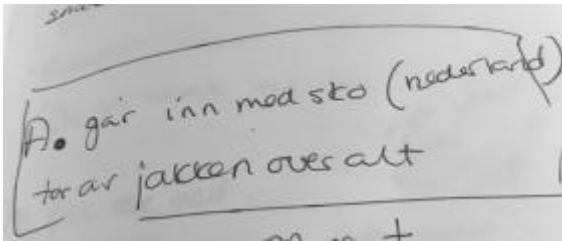 A. går inn med sko (nederland)
tar av jakken over alt